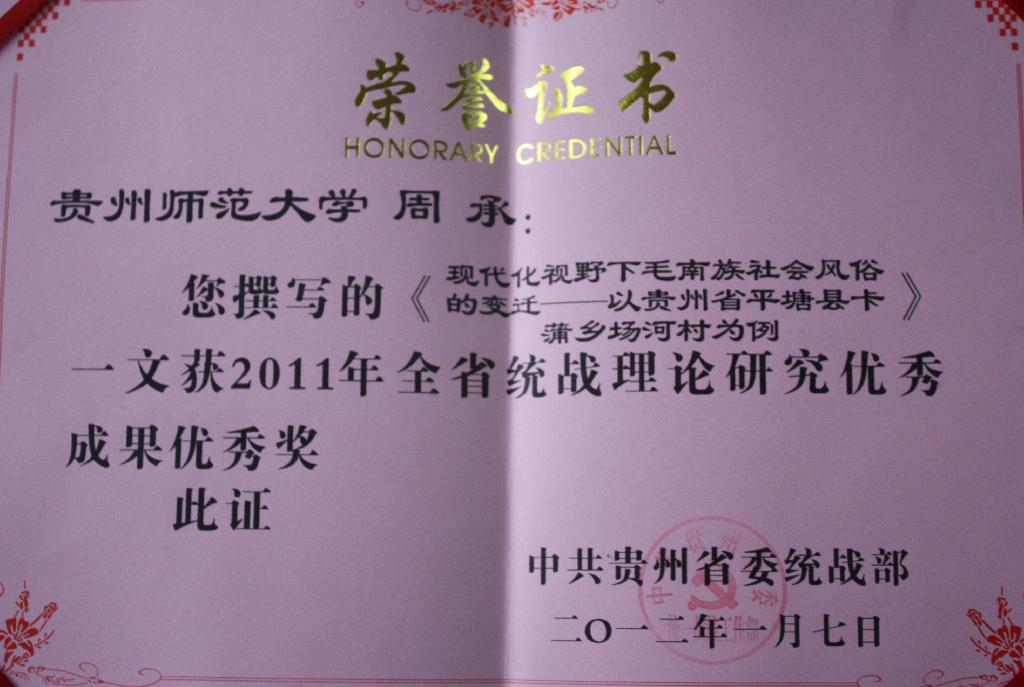 荣誉证书
HONORARY CREDENTIAL
贵州师范大学 周 承:
您撰写的《现代化视野下毛南族社会风俗
的变迁——以贵州省平塘县卡
蒲乡场河村为例》
一文获2011年全省统战理论研究优秀
成果优秀奖
此证
中共贵州省委统战部
二〇一二年一月七日